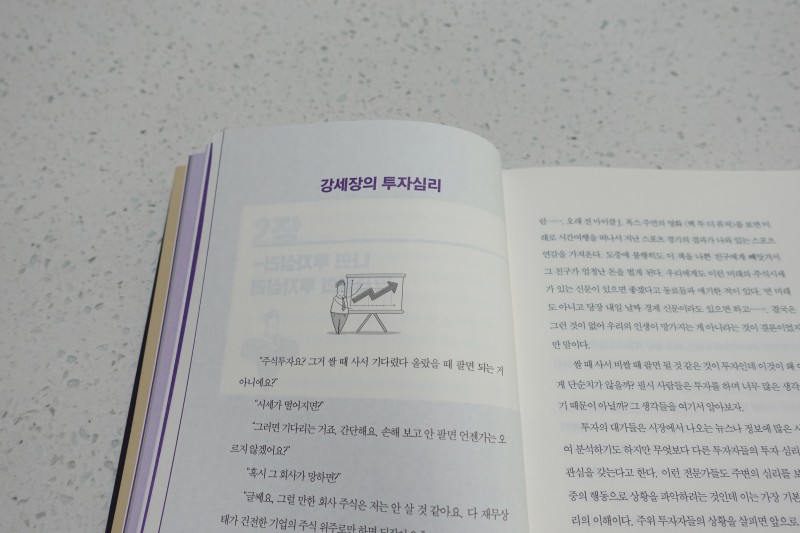 강세장의 투자심리
"주식투자요? 그거 쌀 때 사서 기다렸다 올랐을 때 팔면 되는 거
아니에요?"
"시세가 떨어지면?"
"그러면 기다리는 거죠, 간단해요. 손해 보고 안 팔면 언젠가는 오
르지 않겠어요?"
"혹시 그 회사가 망하면?"
"글쎄요, 그럴 만한 회사 주식은 저는 안 살 것 같아요. 다 재무상
태가 건전한 기업의 주식 위주로만 하면
람……. 오래 전 마이클 J. 폭스 주연의 영화 〈백 투 더 퓨처〉를 보면 미
래로 시간여행을 떠나서 지난 스포츠 경기의 결과가 나와 있는 스포츠
연감을 가져온다. 도중에 불행히도 이 책을 나쁜 친구에게 빼앗겨서
그 친구가 엄청난 돈을 벌게 된다. 우리에게도 이런 미래의 주식시세
가 있는 신문이 있으면 좋겠다고 동료들과 얘기한 적이 있다. 먼 미래
도 아니고 당장 내일 날짜 경제 신문이라도 있으면 하고……. 결국은
그런 것이 없어 우리의 인생이 망가지는 게 아니라는 것이 결론이었지
만 말이다.
쌀 때 사서 비쌀 때 팔면 될 것 같은 것이 투자인데 이것이 왜
게 단순치가 않을까? 필시 사람들은 투자를 하며 너무 많은 생각
기 때문이 아닐까? 그 생각들을 여기서 알아보자.
투자의 대가들은 시장에서 나오는 뉴스나 정보에 많은
여 분석하기도 하지만 무엇보다 다른 투자자들의 투자 심리
관심을 갖는다고 한다. 이런 전문가들도 주변의 심리를
중의 행동으로 상황을 파악하려는 것인데 이는 가장 기본
리의 이해이다. 주위 투자자들의 상황을 살피면 앞으로